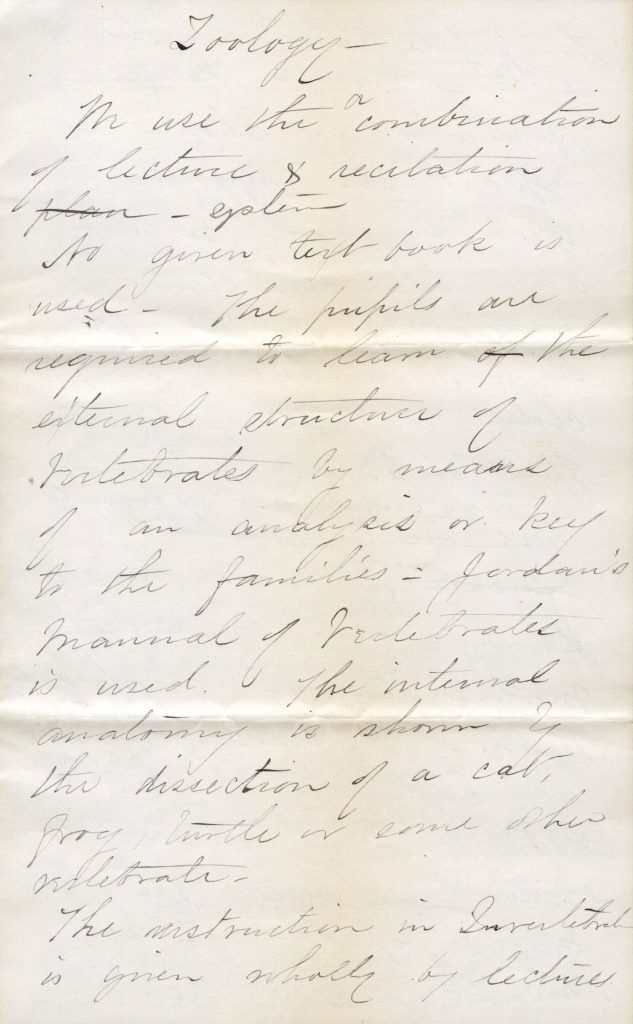 Zoology -
We use the a combination
of lecture & recitation
plan - system
No given text book is
used - The pupils are
required to learn of the
external structure of
Vertebrates by means
of an analysis or key
to the families - Jordan's
Manual of Vertebrates
is used. The internal
anatomy is shown by
the dissection of a cat,
frog, turtle or some other
vertebrate -
The instruction in Invertebrate
is given wholly by lectures